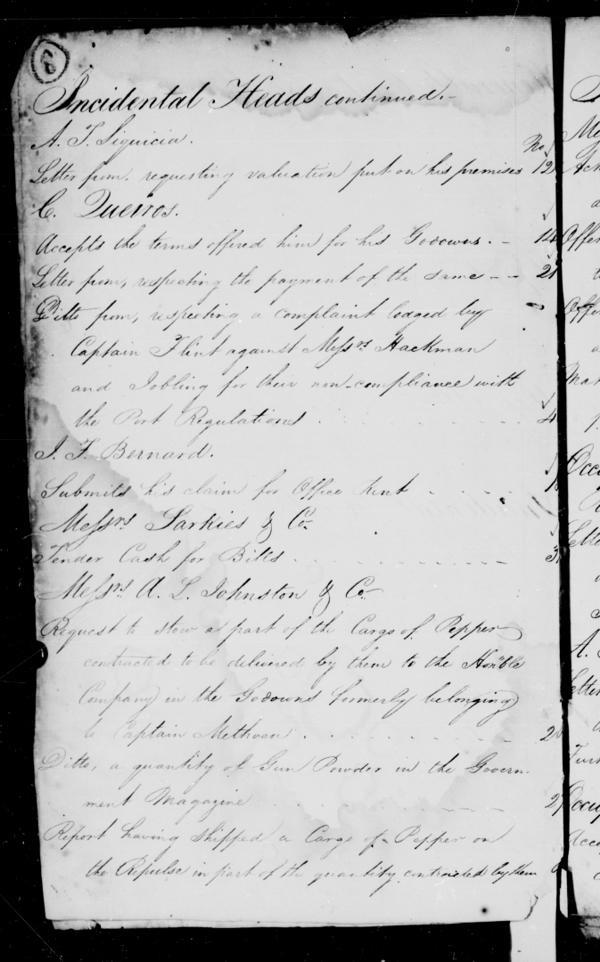 8
Incidental Heads continued.-
A. F. Siquicia.
No.
Letter from, requesting valuation put on his premises 12
C. Queiros.
Accepts the terms offered him for his Godowns. - 14
Letter from, respecting the payment of the same - - 21
Ditto from, respecting a complaint lodged by
Captain Flint against Messrs. Hackman
and Jobling for their non-compliance with
the Port Regulations . . . . . 4
J. F. Bernard.
Submits his claim for Office Rent
Messrs Sarkies & Co.
Tender Cash for Bills . . . . . 3
Messrs. A. L. Johnston & Co.
Request to stow a part of the Cargo of Pepper
contracted to be delivered by them to the Honble
Company in the Godowns formerly belonging
to Captain Methven . . . . .
Ditto, a quantity of Gun Powder in the Govern-
ment Magazine . . . . .
Report having shipped a Cargo of Pepper on
the Repulse in part of the quantity contracted by them